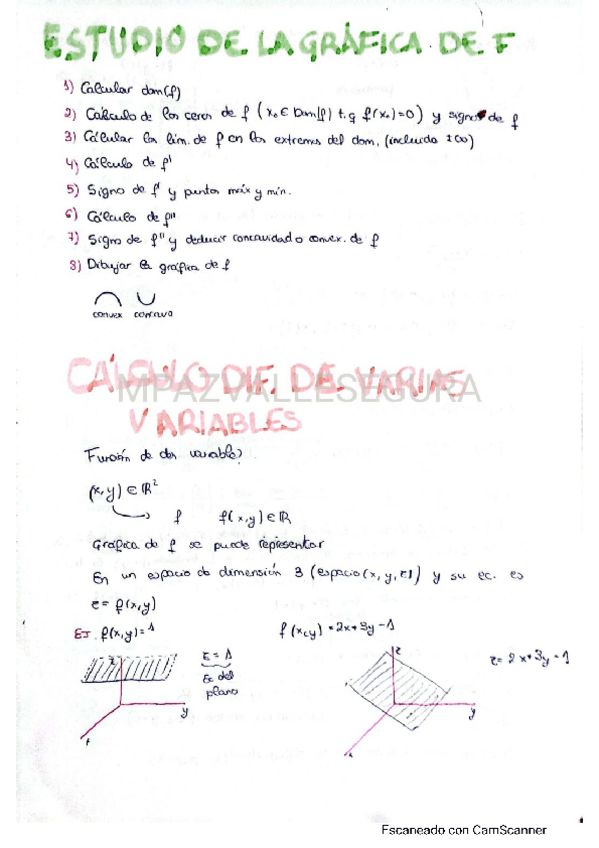 ESTUDIO DE LA GRÁFICA DE F
1) Calcular dom(f)
2) Cálculo de los ceros de f (x₀ ∈ Dom(f) t.q f(x₀)=0) y signo de f
3) Cálcular los lím. de f en los extremos del dom. (incluido ±∞)
4) Cálculo de f'
5) Signo de f' y puntos máx y mín.
6) Cálculo de f''
7) Signo de f'' y deducir concavidad o convex. de f
8) Dibujar la gráfica de f
convex cóncavo
CÁLCULO DIF. DE VARIAS
VARIABLES
MPAZVALLESEGURA
Función de dos variables
(x,y) ∈ ℝ²
f f(x,y) ∈ ℝ
Gráfica de f se puede representar
En un espacio de dimensión 3 (espacio (x, y, z)) y su ec. es
z = f(x,y)
EJ. f(x,y)=1
z = 1
Ec del
plano
z
y
x
f(x,y) = 2x+3y-1
z
y
x
z = 2x+3y-1
Escaneado con CamScanner